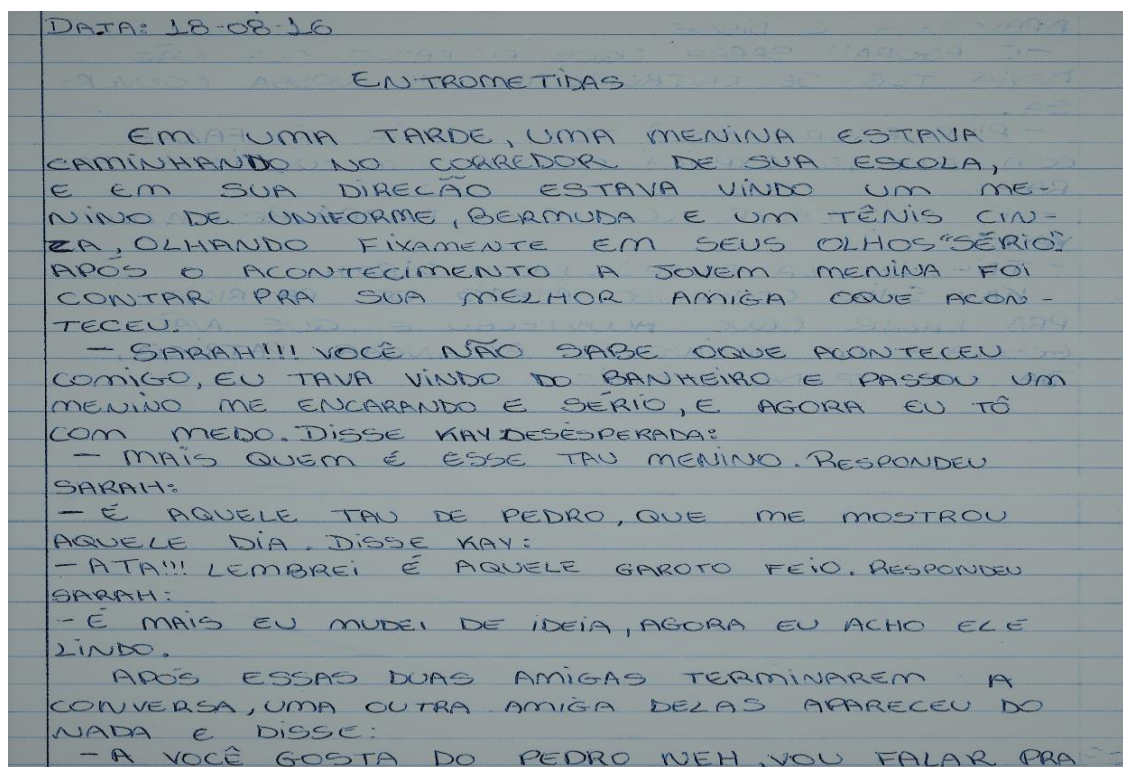 DATA: 18-08-16
ENTROMETIDAS
EM UMA TARDE, UMA MENINA ESTAVA
CAMINHANDO NO CORREDOR DE SUA ESCOLA,
E EM SUA DIRECÃO ESTAVA VINDO UM ME-
NINO DE UNIFORME, BERMUDA E UM TÊNIS CIN-
ZA, OLHANDO FIXAMENTE EM SEUS OLHOS "SÉRIO".
APÓS O ACONTECIMENTO A JOVEM MENINA FOI
CONTAR PRA SUA MELHOR AMIGA OQUE ACON-
TECEU.
— SARAH!!! VOCÊ NÃO SABE OQUE ACONTECEU
COMIGO, EU TAVA VINDO DO BANHEIRO E PASSOU UM
MENINO ME ENCARANDO E SÉRIO, E AGORA EU TÔ
COM MEDO. DISSE KAY DESESPERADA:
— MAIS QUEM É ESSE TAU MENINO. RESPONDEU
SARAH:
— É AQUELE TAU DE PEDRO, QUE ME MOSTROU
AQUELE DIA. DISSE KAY:
— ATA!!! LEMBREI É AQUELE GAROTO FEIO. RESPONDEU
SARAH:
- É MAIS EU MUDEI DE IDEIA, AGORA EU ACHO ELE
LINDO.
APÓS ESSAS DUAS AMIGAS TERMINAREM A
CONVERSA, UMA OUTRA AMIGA DELAS APARECEU DO
NADA E DISSE:
- A VOCÊ GOSTA DO PEDRO NEH, VOU FALAR PRA